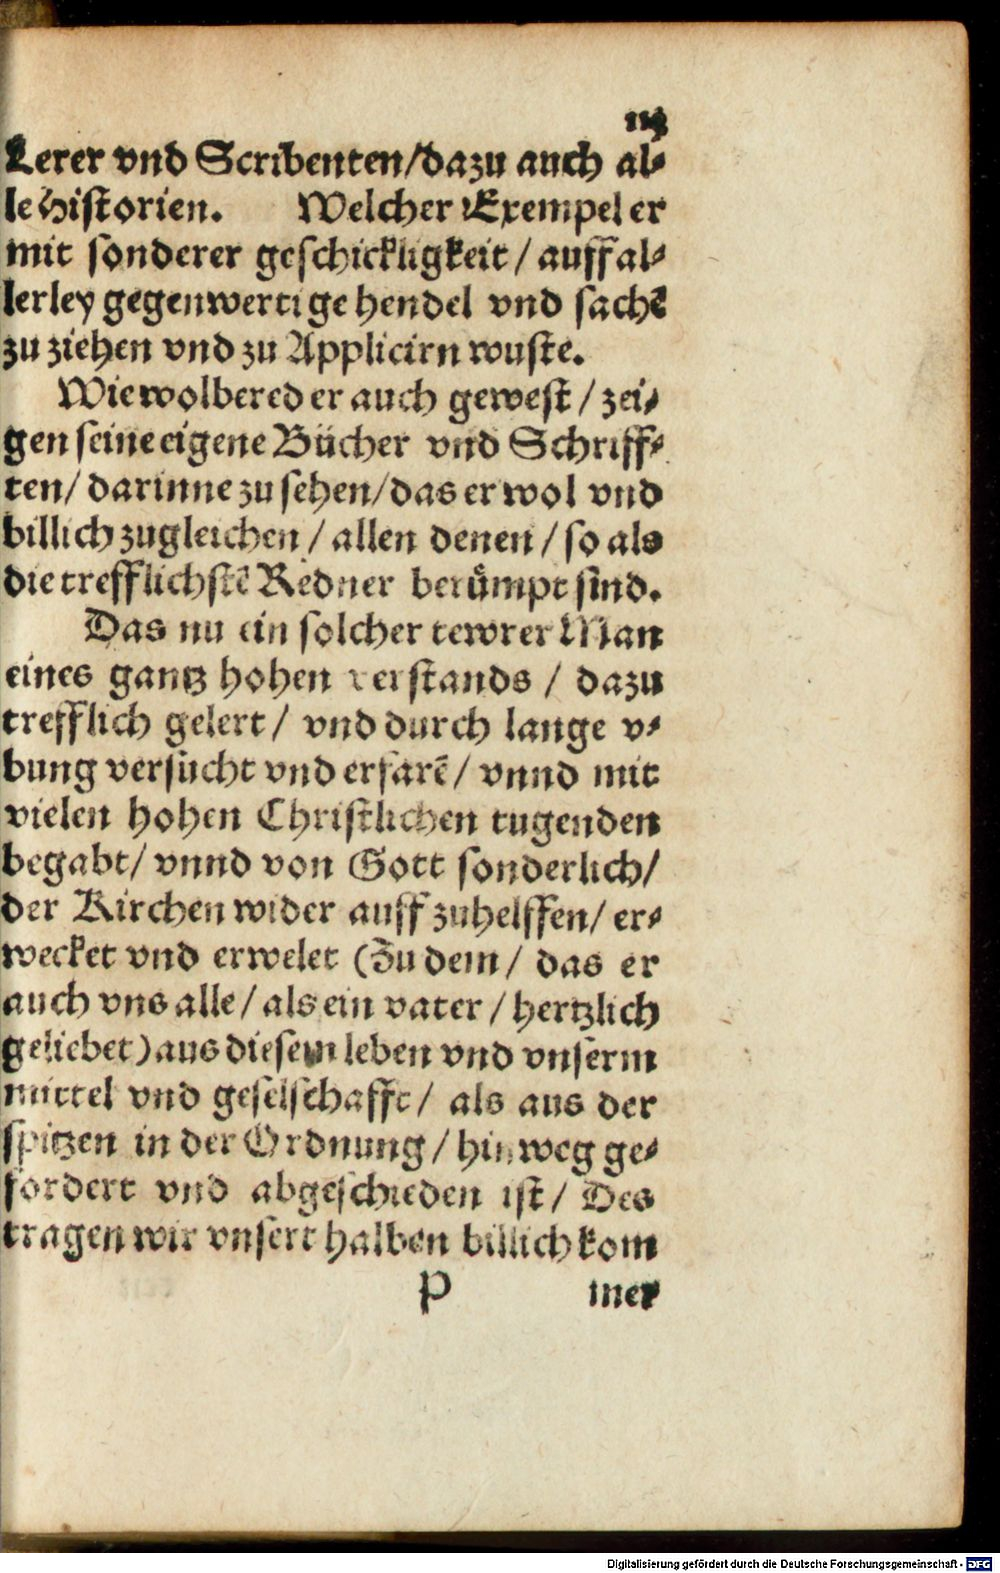 113
Lerer vnd Scribenten/dazu auch al⸗
le Historien. Welcher Exempel er
mit sonderer geschickligkeit / auff al⸗
lerley gegenwertige hendel vnd sachē
zu ziehen vnd zu Applicirn wuste.
Wie wolbered er auch gewest / zei⸗
gen seine eigene Bücher vnd Schriff⸗
ten/ darinne zu sehen/das er wol vnd
billich zugleichen / allen denen / so als
die trefflichstē Redner berůmpt sind.
Das nu ein solcher tewrer Man
eines gantz hohen verstands / dazu
trefflich gelert/ vnd durch lange v⸗
bung versücht vnd erfarē/ vnnd mit
vielen hohen Christlichen tugenden
begabt/ vnnd von Gott sonderlich/
der Kirchen wider auff zuhelffen/ er⸗
wecket vnd erwelet (Zu dem/ das er
auch vns alle / als ein vater / hertzlich
geliebet) aus diesem leben vnd vnserm
mittel vnd geselschafft/ als aus der
spitzen in der Ordnung/ hinweg ge⸗
fordert vnd abgeschieden ist/ Des
tragen wir vnsert halben billich kom
P mer
Digitalisierung gefördert durch die Deutsche Forschungsgemeinschaft - DFG